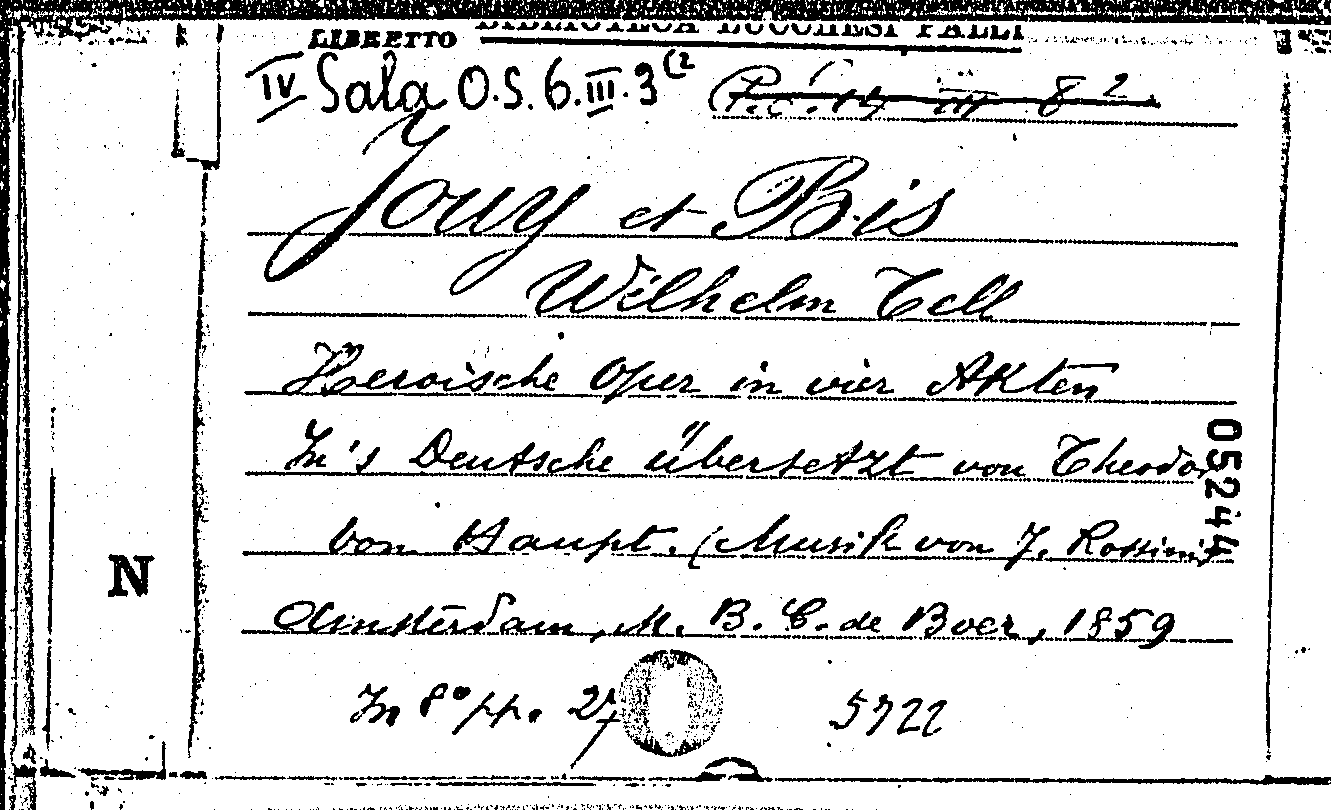 LIBRETTO BIBLIOTECA LUCCHESI PALLI
IV Sala O.S. 6.III.3(2 8 2.
Jouy et Bis
Wilhelm Tell
Heroische Oper in vier Akten
In's Deutsche übersetzt von Theodor
von Haupt. (Musik von J. Rossini)
Amsterdam, M. B. C. de Boer, 1859
In 8° pp. 27
5722
05244
N